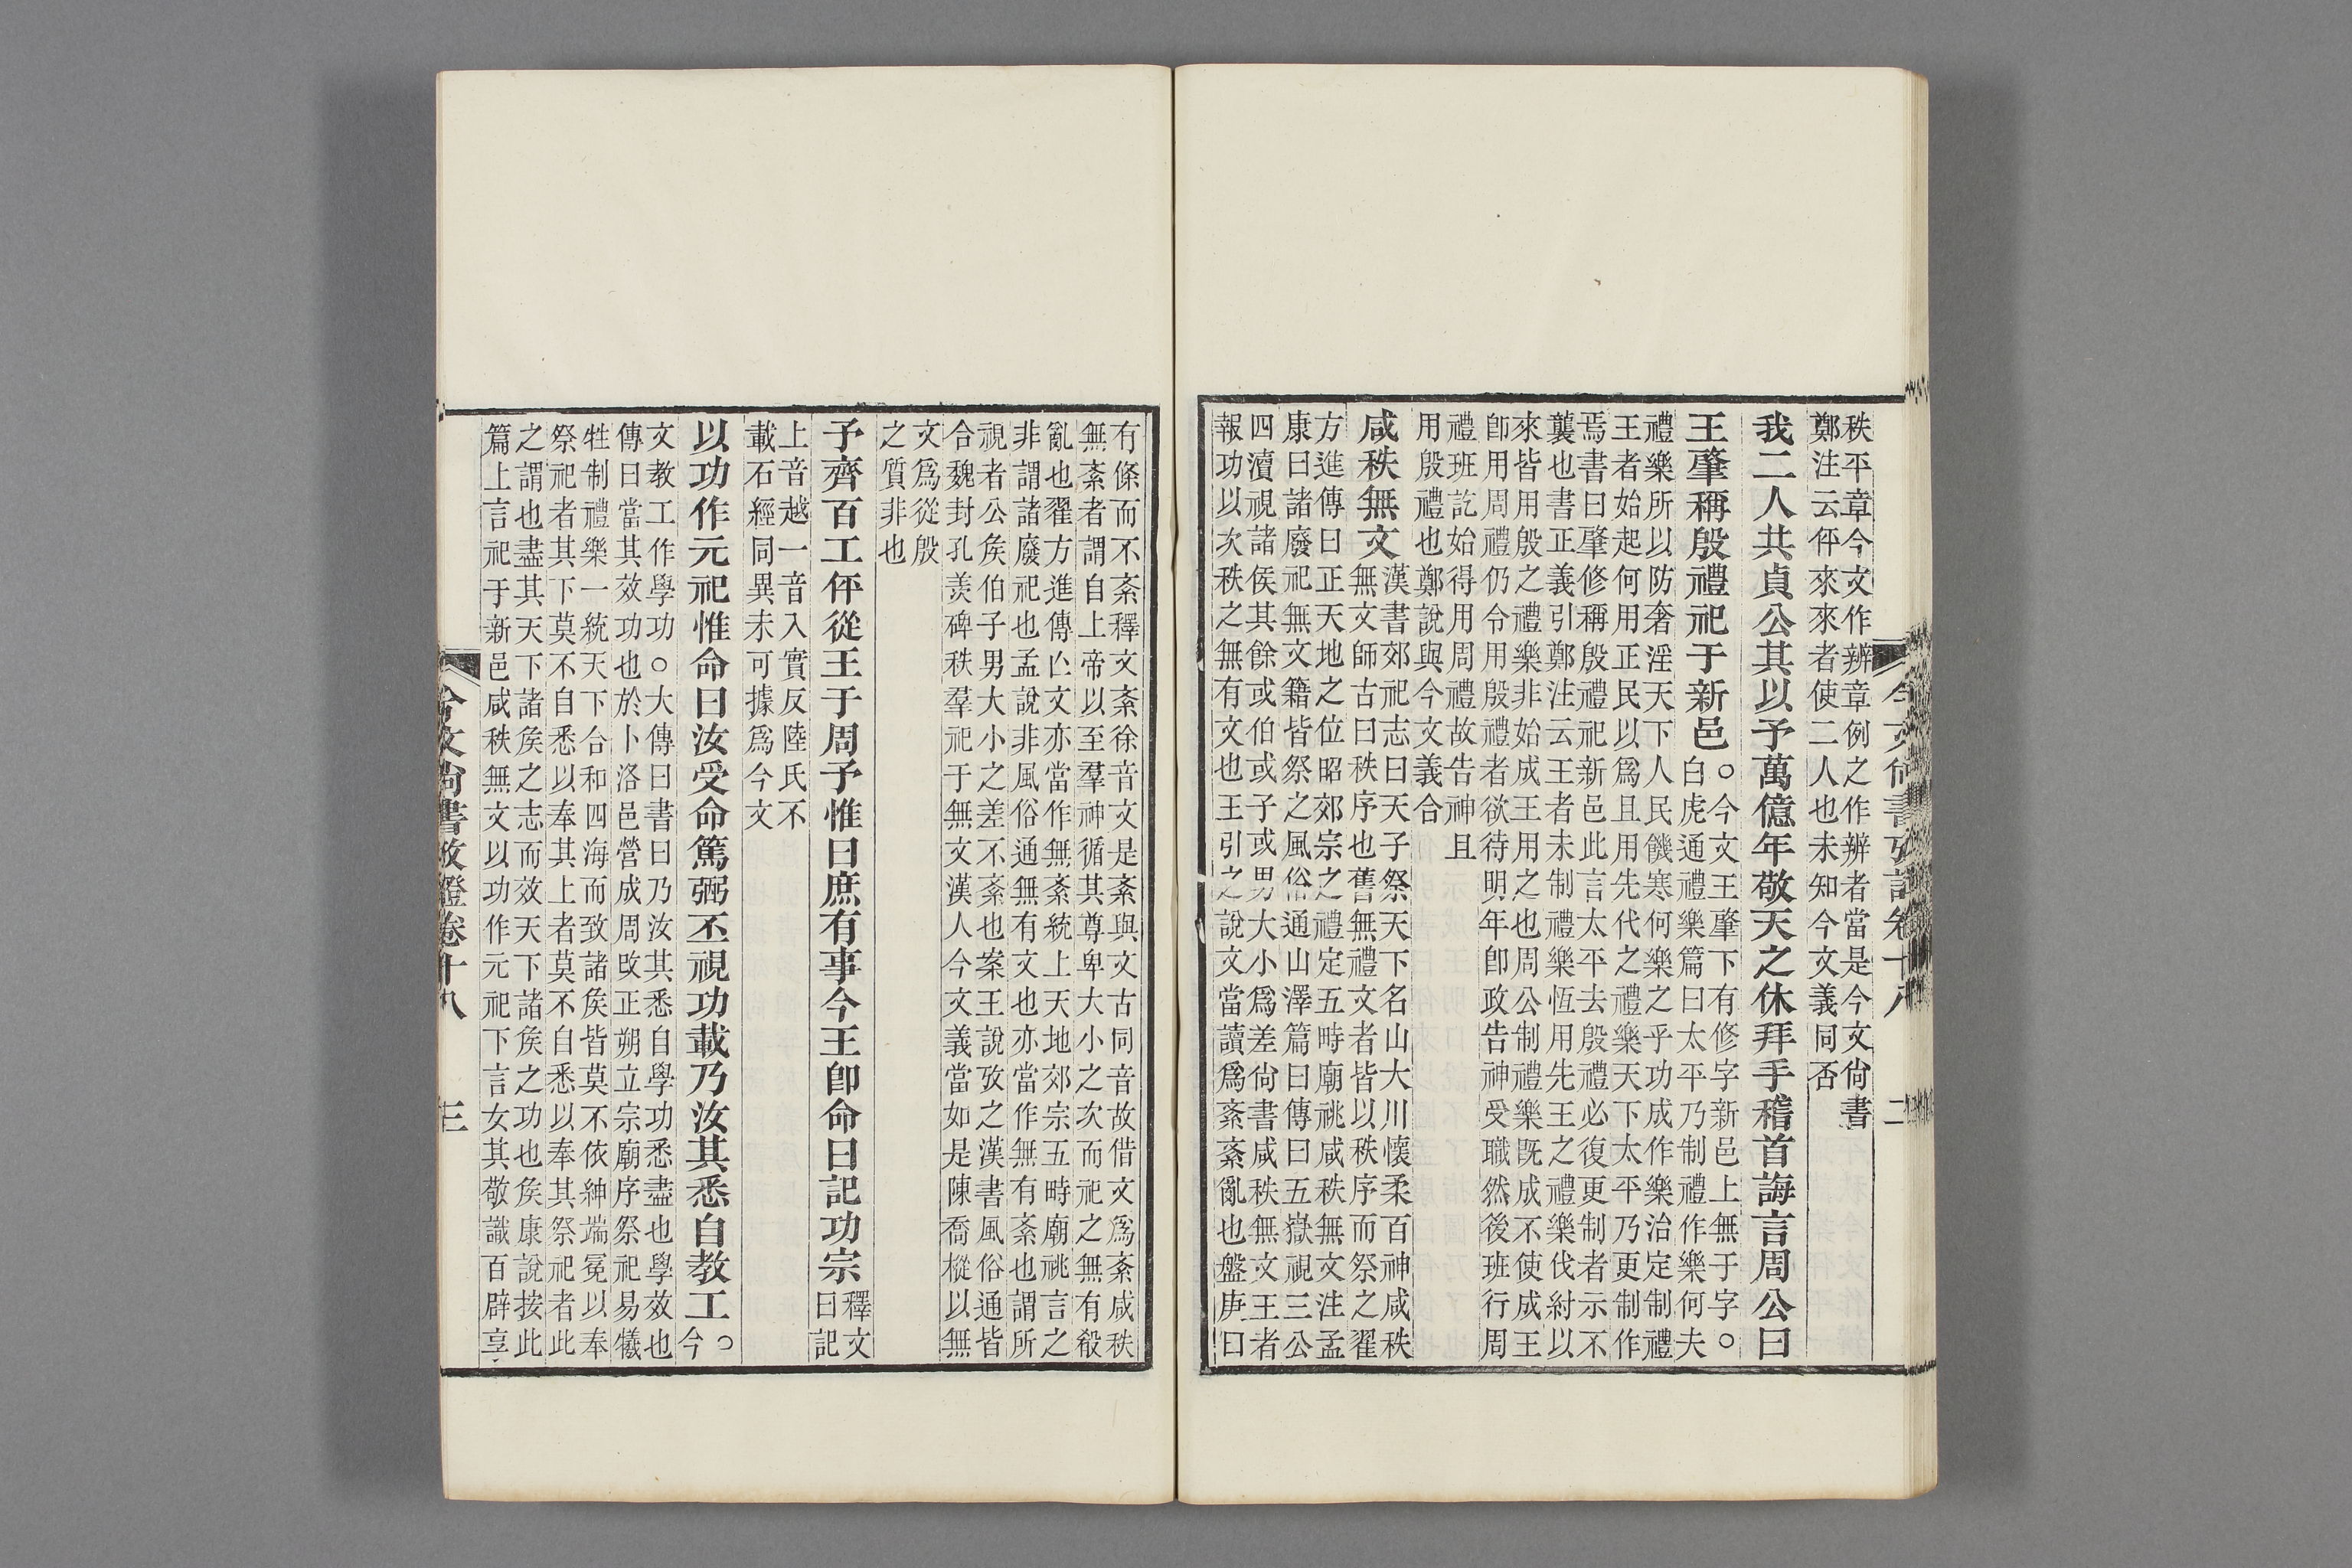 秩平章今文作辨章例之作辨者當是今文尙書
鄭注云伻來來者使二人也未知今文義同否
我二人共貞公其以予萬億年敬天之休拜手稽首誨言周公曰
王肇稱殷禮祀于新邑○今文王肇下有修字新邑上無于字○
白虎通禮樂篇曰太平乃制禮作樂何夫
禮樂所以防奢淫天下人民饑寒何樂之乎功成作樂治定制禮
王者始起何用正民以爲且用先代之禮樂天下太平乃更制作
焉書曰肇修稱殷禮祀新邑此言太平去殷禮必復更制者示不
襲也書正義引鄭注云王者未制禮樂恆用先王之禮樂伐紂以
來皆用殷之禮樂非始成王用之也周公制禮樂既成不使成王
卽用周禮仍令用殷禮者欲待明年卽政告神受職然後班行周
禮班訖始得用周禮故告神且
用殷禮也鄭說與今文義合
咸秩無文漢書郊祀志曰天子祭天下名山大川懷柔百神咸秩
無文師古曰秩序也舊無禮文者皆以秩序而祭之翟
方進傳曰正天地之位昭郊宗之禮定五畤廟祧咸秩無文注孟
康曰諸廢祀無文籍皆祭之風俗通山澤篇曰傳曰五嶽視三公
四瀆視諸侯其餘或伯或子或男大小爲差尙書咸秩無文王者
報功以次秩之無有文也王引之說文當讀爲紊紊亂也盤庚曰
今文尙書攷證卷十八
二
有條而不紊釋文紊徐音文是紊與文古同音故借文爲紊咸秩
無紊者謂自上帝以至羣神循其尊卑大小之次而祀之無有殽
亂也翟方進傳亾文亦當作無紊統上天地郊宗五畤廟祧言之
非謂諸廢祀也孟說非風俗通無有文也亦當作無有紊也謂所
視者公矦伯子男大小之差不紊也案王說攷之漢書風俗通皆
合魏封孔羨碑秩羣祀于無文漢人今文義當如是陳喬樅以無
文爲從殷
之質非也
予齊百工伻從王于周予惟曰庶有事今王卽命曰記功宗釋文
曰記
上音越一音入實反陸氏不
載石經同異未可據爲今文
以功作元祀惟命曰汝受命篤弼丕視功載乃汝其悉自教工○
今
文教工作學功○大傳曰書曰乃汝其悉自學功悉盡也學效也
傳曰當其效功也於卜洛邑營成周改正朔立宗廟序祭祀易犧
牲制禮樂一統天下合和四海而致諸矦皆莫不依紳端冕以奉
祭祀者其下莫不自悉以奉其上者莫不自悉以奉其祭祀者此
之謂也盡其天下諸矦之志而效天下諸矦之功也矦康說按此
篇上言祀于新邑咸秩無文以功作元祀下言女其敬識百辟享
今文尙書攷證卷十八
三